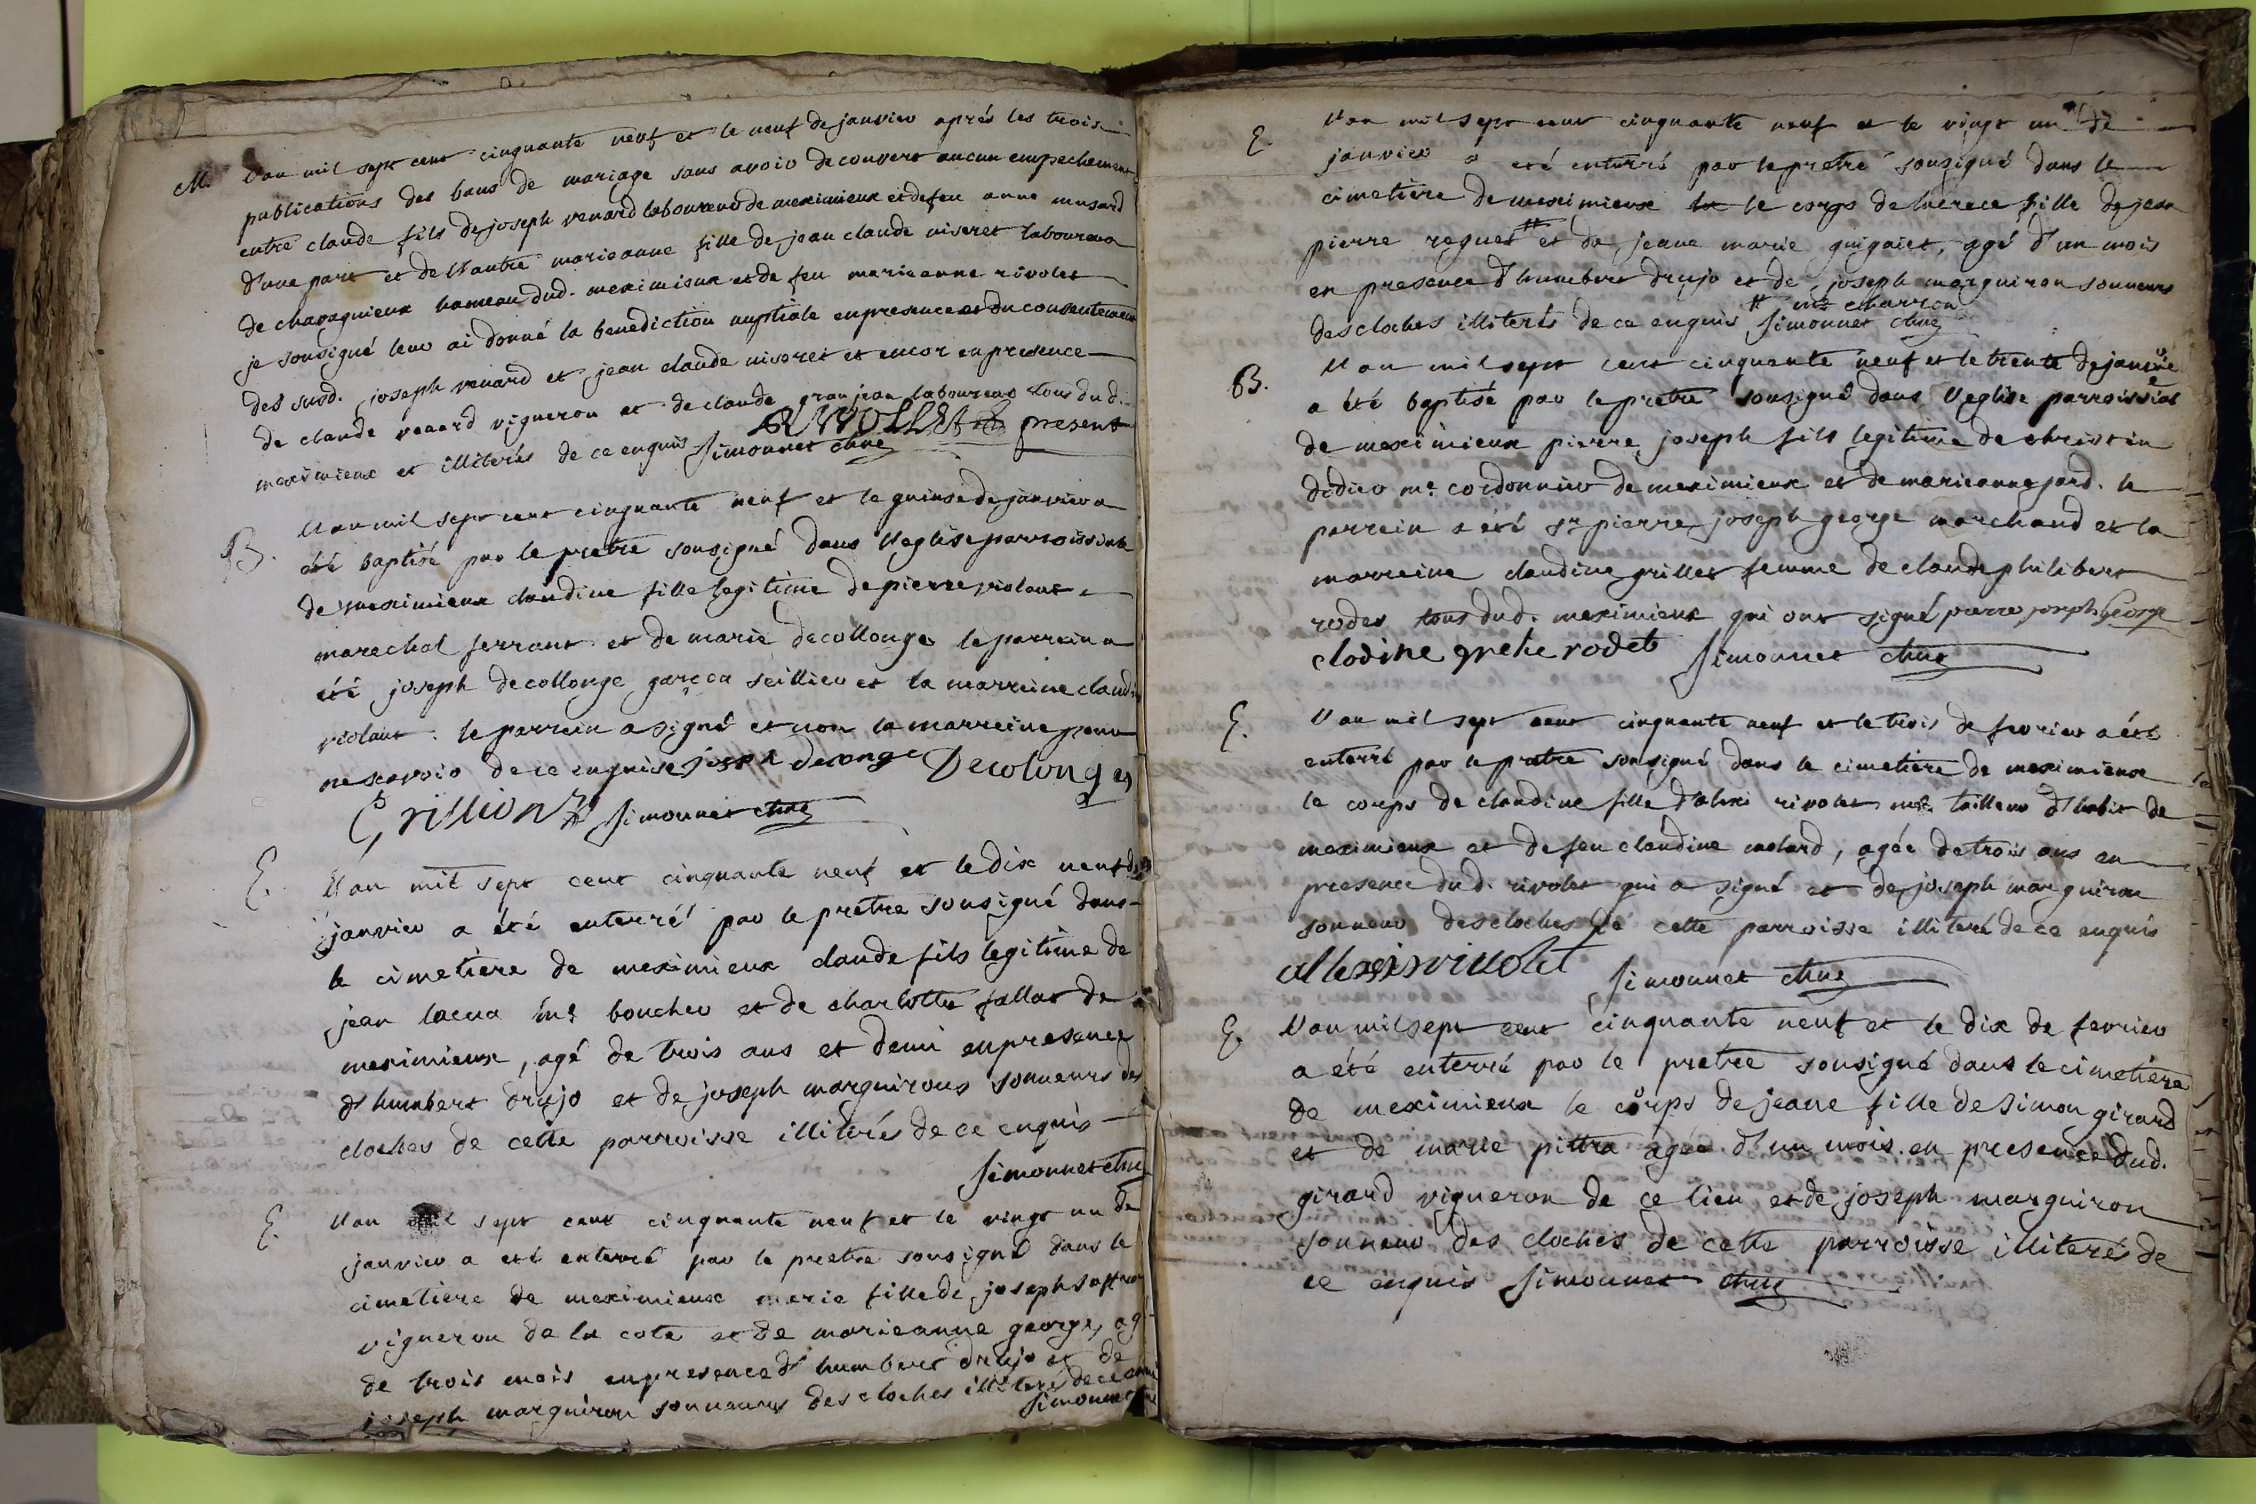 M. l'an mil sept cent cinquante neuf et le neuf de janvier aprés les trois
publications des bans de mariage sans avoir decouvert aucun empechement
entre claude fils de joseph renard laboureur de meximieux et de feu anne musard
d'une part et de l'autre marieanne fille de jean claude niseret laboureur
de chavagnieux hameau dud. meximieux et de feu marieanne rivolet
je sousigné leur ai donné la benediction nuptiale en presence et du consentement
des susd. joseph renard et jean claude niseret et encor en presence
de claude renard vigneron et de claude granjean laboureur tous dud.
meximieux et illiterés de ce enquis RIVOLLET present
simonnet chne
B. l'an mil sept cent cinquante neuf et le quinse de janvier a
été baptisé par le pretre sousigné dans l'eglise parroissiale
de meximieux claudine fille legitime de pierre violant
marechal ferrant et de marie decollonge le parrein a
été joseph decollonge garçon seillier et la marreine claudine
violant. le parrein a signé et non la marreine pour
ne scavoir de ce enquise Decolonge
Grillion simonnet chne
E. l'an mil sept cent cinquante neuf et le dix neuf de
janvier a été enterré par le pretre sousigné dans
le cimetiere de meximieux claude fils legitime de
jean lacua me boucher et de charlotte fallat de
meximieux, agé de trois ans et demi en presence
d'humbert drujo et de joseph marguirons sonneurs des
cloches de cette parroisse illiterés de ce enquis
simonnet chne
E. l'an mil sept cent cinquante neuf et le vingt un de
janvier a été enterré par le pretre sousigné dans le
cimetiere de meximieux marie fille de joseph
vigneron de la cote et de marieanne george, agé
de trois mois en presence d'humbert drujo et de
joseph marguiron sonneurs des cloches illiterés de ce enquis
simonnet chne
E. l'an mil sept cent cinquante neuf et le vingt un de
janvier a été enterré par le pretre sousigné dans le
cimetiere de meximieux le corps de fille de jean
pierre reguet # et de jeane marie guigaiet, agé d'un mois
en presence d'humbert drujo et de joseph marguiron sonneurs
# me charron
des cloches illiterés de ce enquis simonnet chne
B. l'an mil sept cent cinquante neuf et le trente de janvier
a été baptisé par le pretre sousigné dans l'eglise parroissial
de meximieux pierre joseph fils legitime de christin
didier me cordonnier de meximieux et de marieanne jard. le
parrein a été sr pierre joseph george marchand et la
marreine claudine grillet femme de claude philibert
rodes tous dud. meximieux qui ont signé pierre joseph George
clodine grelie rodet simonnet chne
E. l'an mil sept cent cinquante neuf et le trois de fevrier a été
enterré par le pretre sousigné dans le cimetiere de meximieux
le corps de claudine fille d'alexi rivolet me tailleur d'habit de
meximieux et de feu claudine molard, agée de trois ans en
presence dud. rivolet qui a signé et de joseph marguiron
sonneur des cloches de cette parroisse illiteré de ce enquis
simonnet chne
E. l'an mil sept cent cinquante neuf et le dix de fevrier
a été enterré par le pretre sousigné dans le cimetiere
de meximieux le corps de jeane fille de simon girard
et de marie pittra agée d'un mois en presence dud.
girard vigneron de ce lieu et de joseph marguiron
sonneur des cloches de cette parroisse illiterés de
ce enquis simonnet chne